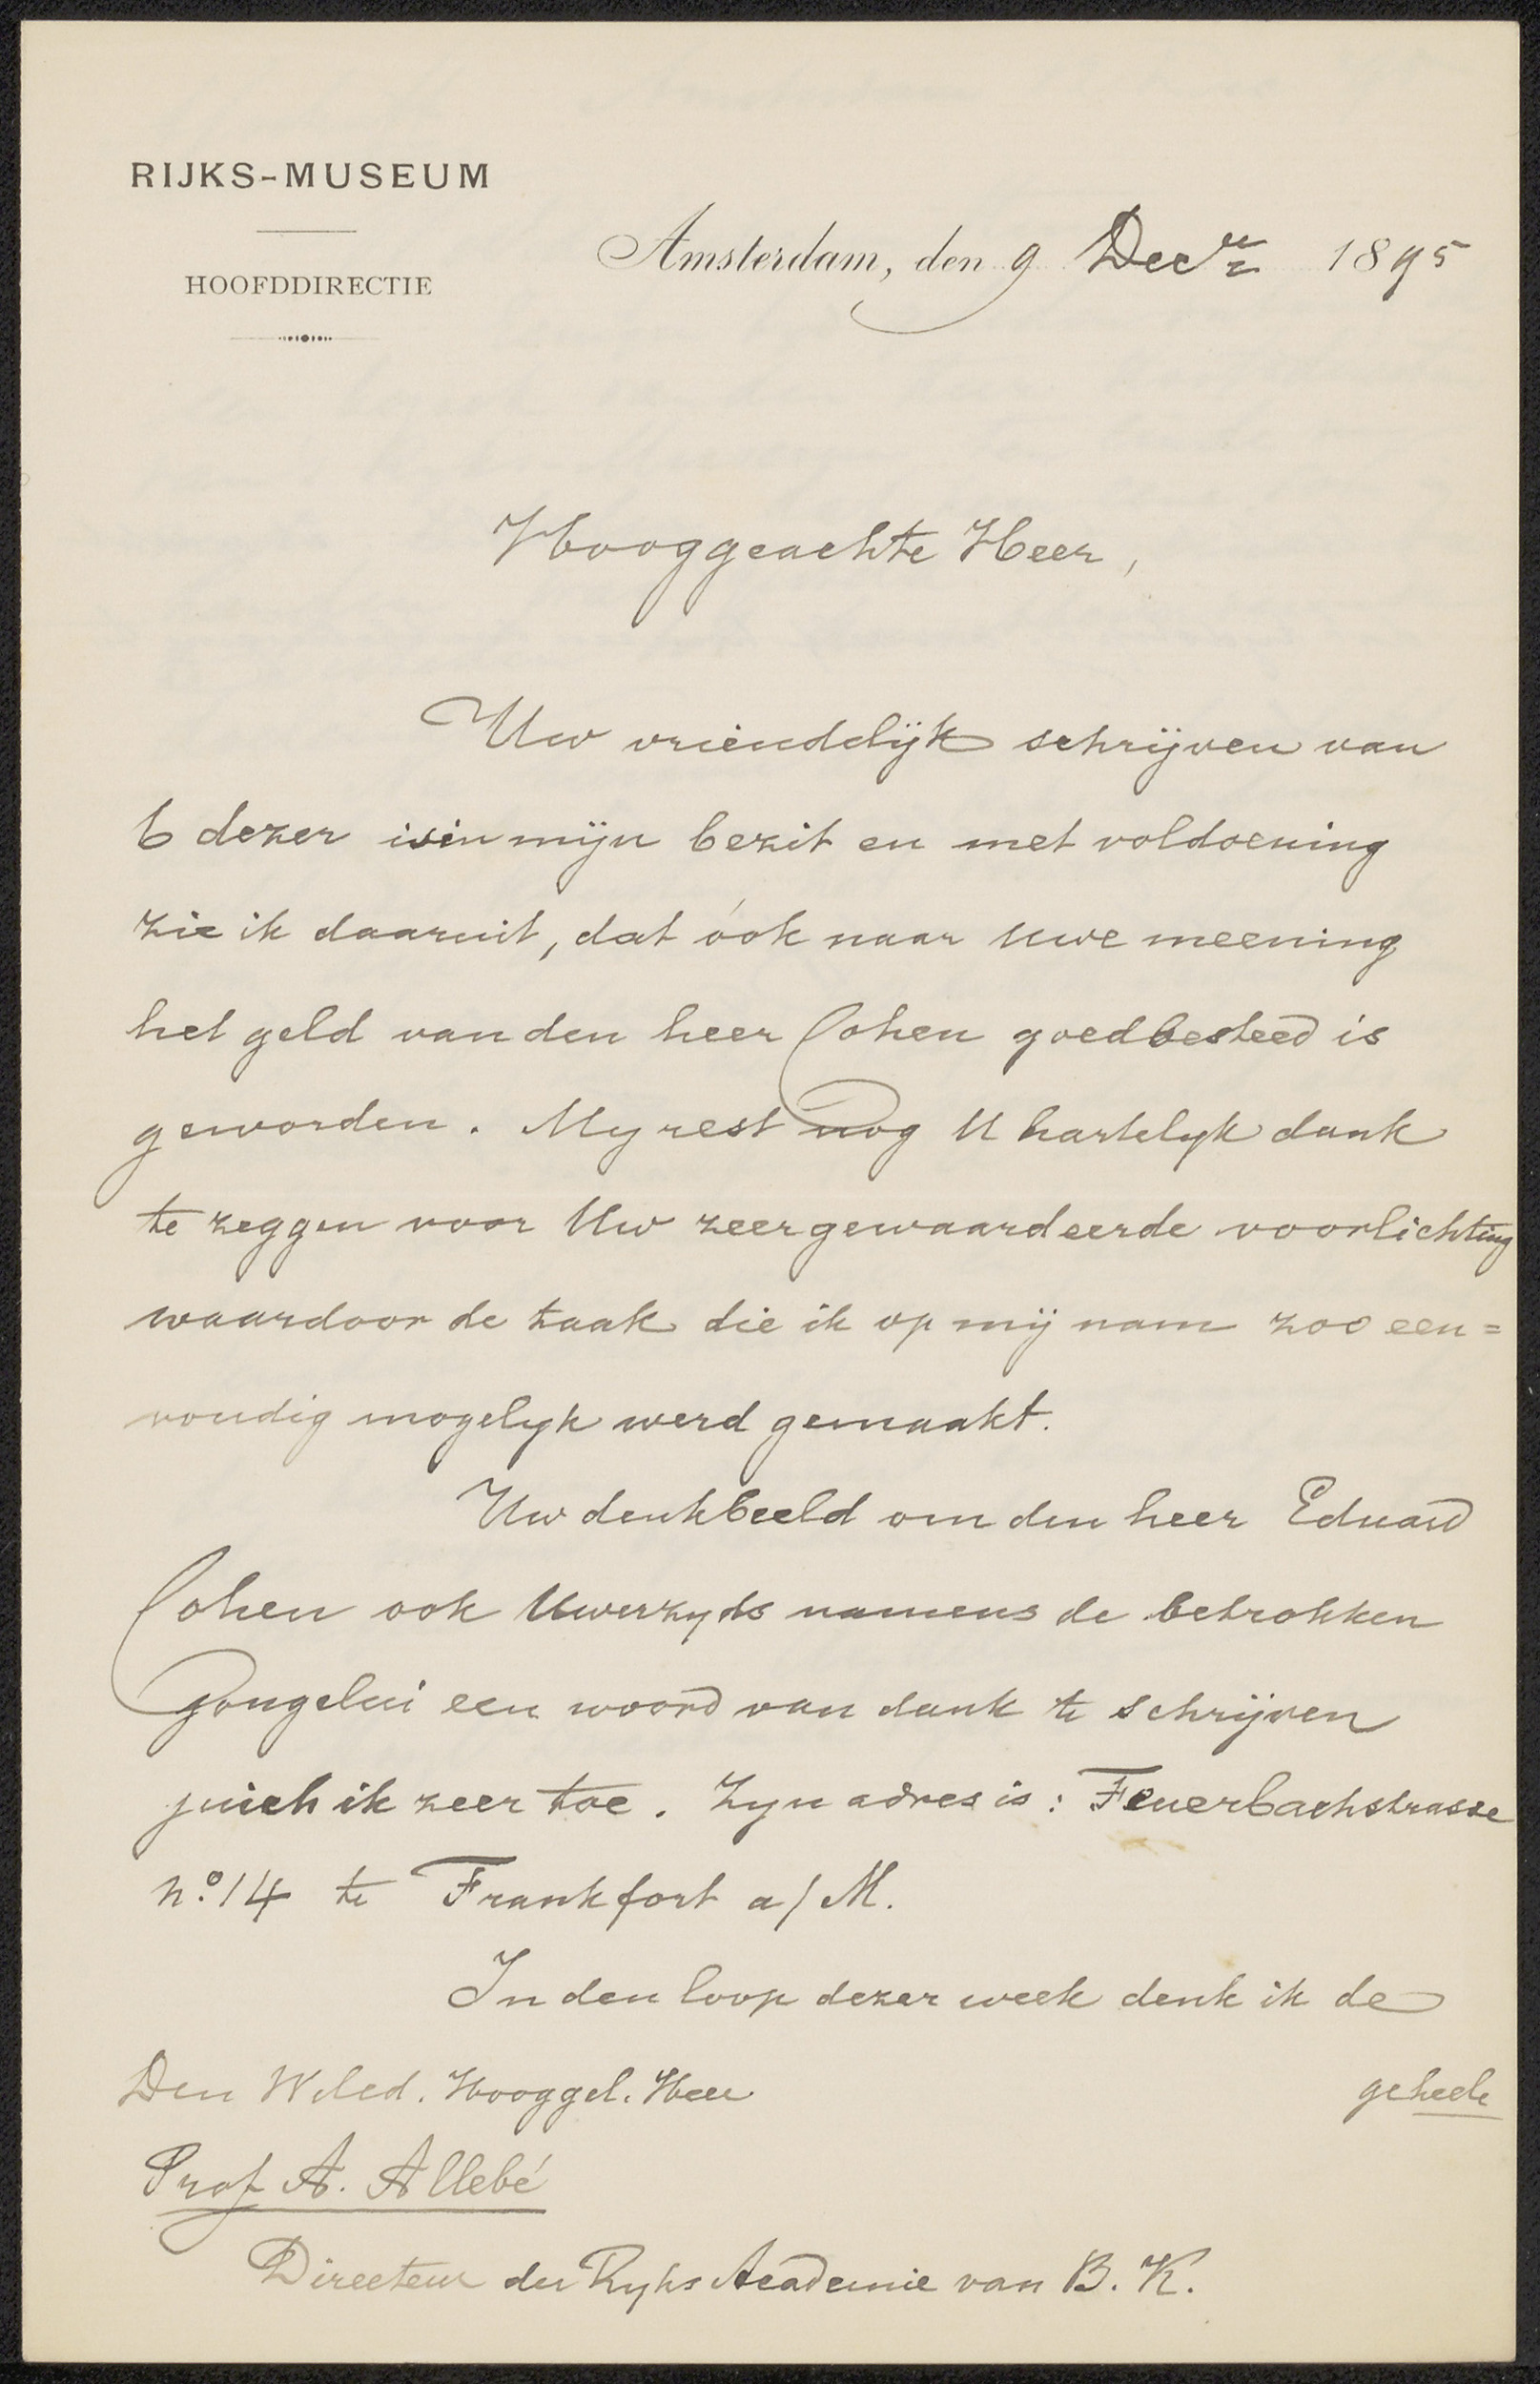 RIJKS-MUSEUM
HOOFDDIRECTIE
Amsterdam, den 9 Dec.r 1895
Hooggeachte Heer,
Uw vriendelijk schrijven van
6 dezer is in mijn bezit en met voldoening
zie ik daaruit, dat óok naar Uwe meening
het geld van den heer Cohen goed besteed is
geworden. My rest nog U hartelyk dank
te zeggen voor Uw zeer gewaardeerde voorlichting
waardoor de taak die ik op mij nam zoo een=
voudig mogelyk werd gemaakt.
Uw denkbeeld om den heer Eduard
Cohen ook Uwerzyds namens de betrokken
Jongelui een woord van dank te schrijven
juich ik zeer toe. Zyn adres is: Feuerbachstrasse
no. 14 te Frankfort a/M.
In den loop dezer week denk ik de
geheele
Den WelEd. Hooggel. Heer
Prof A. Allebé
Directeur der Ryks Academie van B. K.